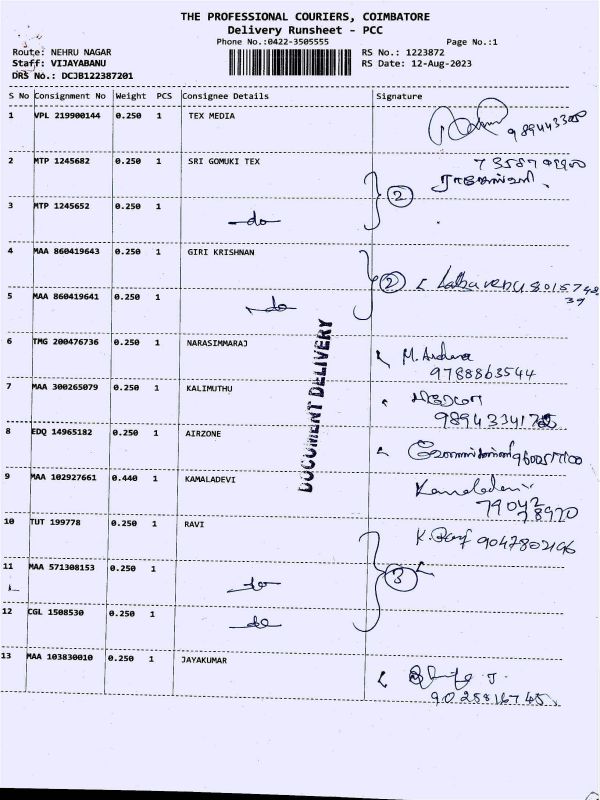 THE PROFESSIONAL COURIERS, COIMBATORE
Delivery Runsheet - PCC
Phone No.:0422-3505555 Page No.:1
Route: NEHRU NAGAR RS No.: 1223872
Staff: VIJAYABANU RS Date: 12-Aug-2023
DRS No.: DCJB122387201
S No Consignment No Weight PCS Consignee Details Signature
1 VPL 219900144 0.250 1 TEX MEDIA
2 MTP 1245682 0.250 1 SRI GOMUKI TEX
3 MTP 1245652 0.250 1 do 2
4 MAA 860419643 0.250 1 GIRI KRISHNAN
5 MAA 860419641 0.250 1 do 2
6 TMG 200476736 0.250 1 NARASIMMARAJ
9788863544
7 MAA 300265079 0.250 1 KALIMUTHU
8 EDQ 14965182 0.250 1 AIRZONE
9 MAA 102927661 0.440 1 KAMALADEVI Kamaladevi
79042
78970
10 TUT 199778 0.250 1 RAVI 9047802196
11 MAA 571308153 0.250 1 do 3
12 CGL 1508530 0.250 1 do
13 MAA 103830010 0.250 1 JAYAKUMAR
9025816745
DOCUMENT DELIVERY